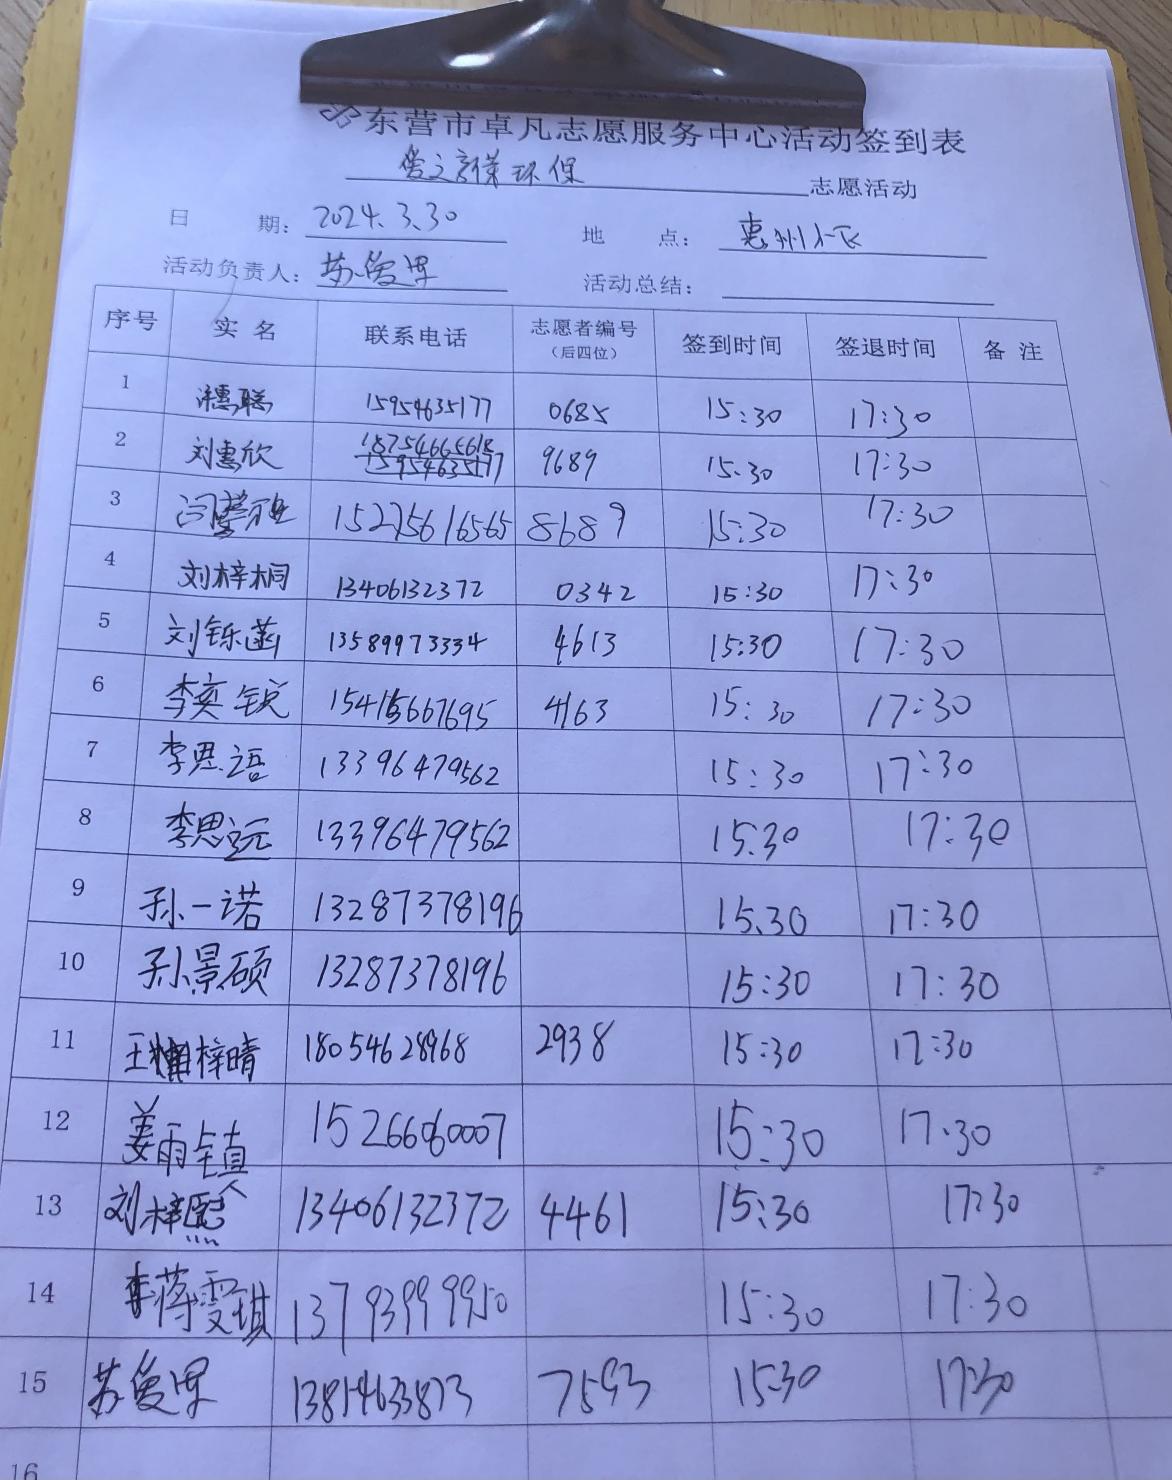 东营市卓凡志愿服务中心活动签到表
环保 志愿活动
日 期: 2024.3.30 地 点: 惠州小区
活动负责人: 苏 活动总结:
序号 实 名 联系电话 志愿者编号 (后四位) 签到时间 签退时间 备 注
1 聪 15954635177 0685 15:30 17:30
2 刘惠欣 18754665618 15954635177 9689 15:30 17:30
3 闫 8689 15:30 17:30
4 刘梓桐 13406132372 0342 15:30 17:30
5 刘铄菡 13589973334 4613 15:30 17:30
6 李奕锐 4163 15:30 17:30
7 李思语 13396479562 15:30 17:30
8 李思远 13396479562 15:30 17:30
9 孙一诺 13287378196 15:30 17:30
10 孙景硕 13287378196 15:30 17:30
11 王梓晴 18054628968 2938 15:30 17:30
12 姜雨镇 15:30 17:30
13 刘梓熙 13406132372 4461 15:30 17:30
14 蒋雯琪 13793999950 15:30 17:30
15 苏 7593 15:30 17:30
16